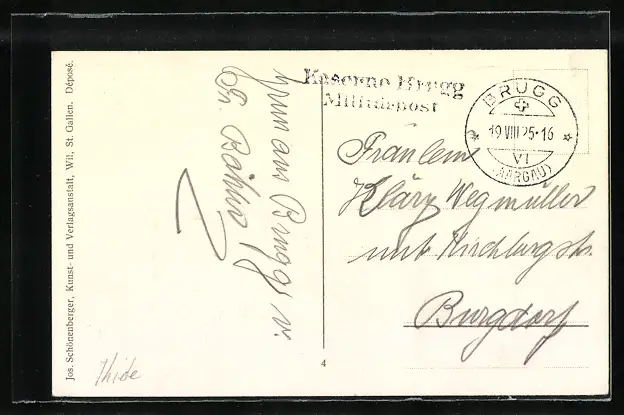 Jos. Schönenberger, Kunst- und Verlagsanstalt, Wil, St. Gallen. Déposé.
Kaserne Brugg
Militärpost
BRUGG
19 VIII 25·16
VI
(AARGAU)
aus Brugg v.
Fräulein
Kläry Wegmüller
unt. Kirchbergstr.
Burgdorf
4